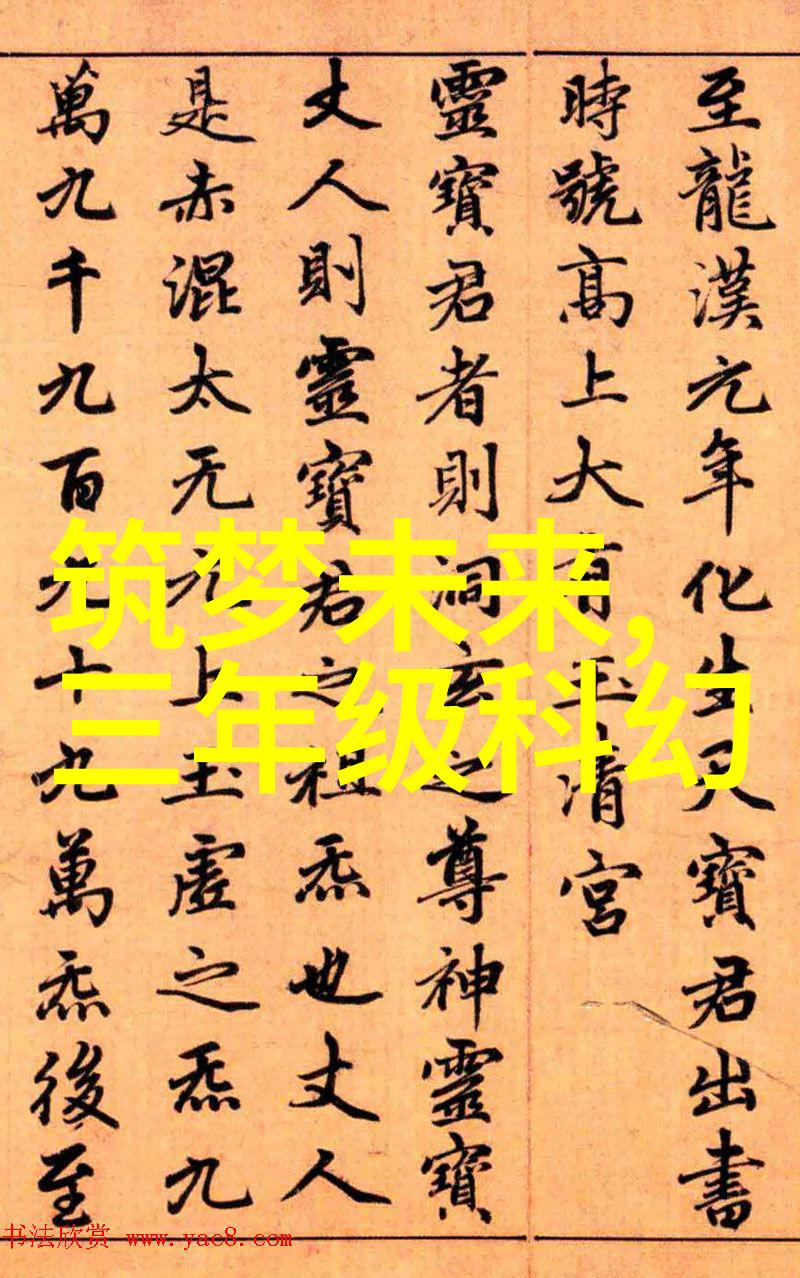 至龍漢元年化生天寶君出書
時號高上大有玉清宮
靈寶君者則洞玄之尊神靈寶
丈人則靈寶君之祖炁也丈人
是赤混太无元上玉虛之炁九
萬九千九百九十九萬炁後至
筑梦未来,
三年级科幻
书法欣赏 www.yac8.com